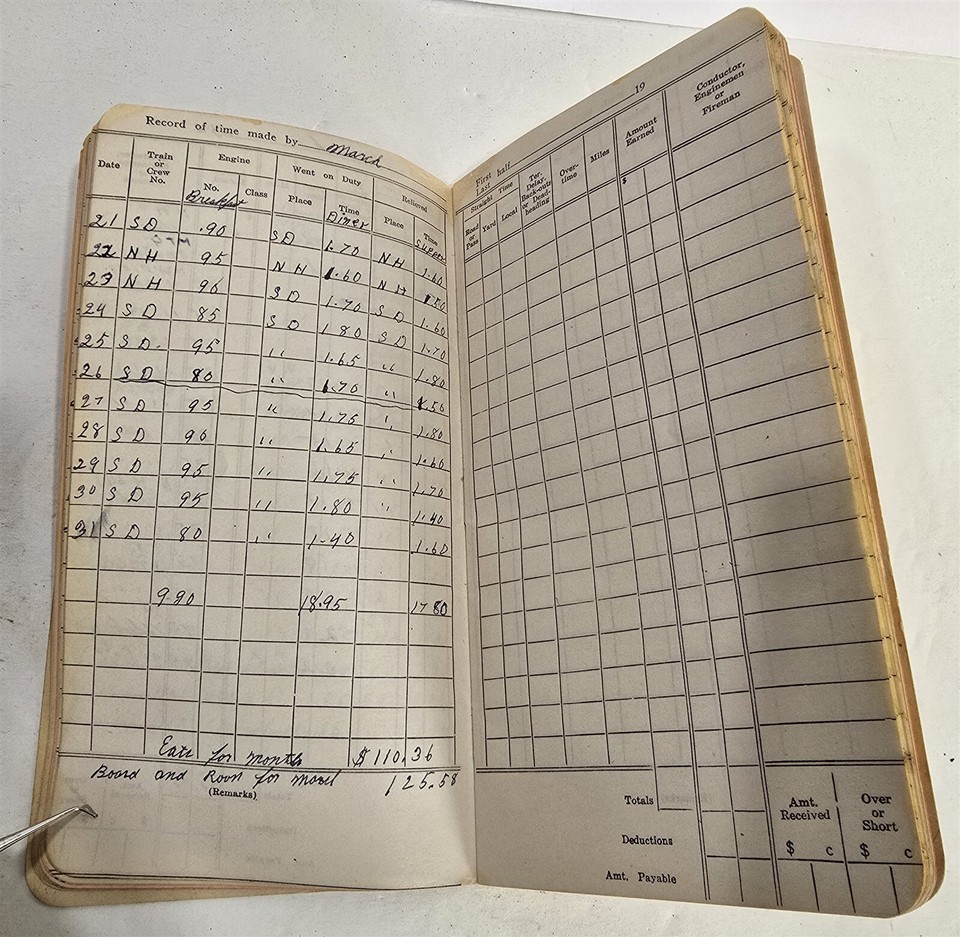 Record of time made by March
Date Train or Crew No. Engine Went on Duty Relieved
No. Class Place Time Place Time
Breakfast Diner Supper
21 SD .90 SD 1.70 NH 1.60
22 NH 95 NH 1.60 NH 1.50
23 NH 90 SD 1.70 SD 1.60
24 SD 85 SD 1.80 SD 1.70
25 SD 95 " 1.65 " 1.80
26 SD 80 " 1.70 " 1.50
27 SD 95 " 1.75 " 1.80
28 SD 90 " 1.65 " 1.60
29 SD 95 " 1.75 " 1.70
30 SD 95 " 1.80 " 1.40
31 SD 80 " 1.40 1.60
9.90 18.95 17 80
Eats for month $110.36
Board and Room for March 125.58
(Remarks)
19
First half
Last half
Straight Time Ter. Delay, Back-outs or Dead-heading Over-time Miles Amount Earned Conductor, Enginemen or Fireman
Road or Pass Yard Local
$
Totals
Deductions
Amt. Payable
Amt. Received Over or Short
$ c $ c